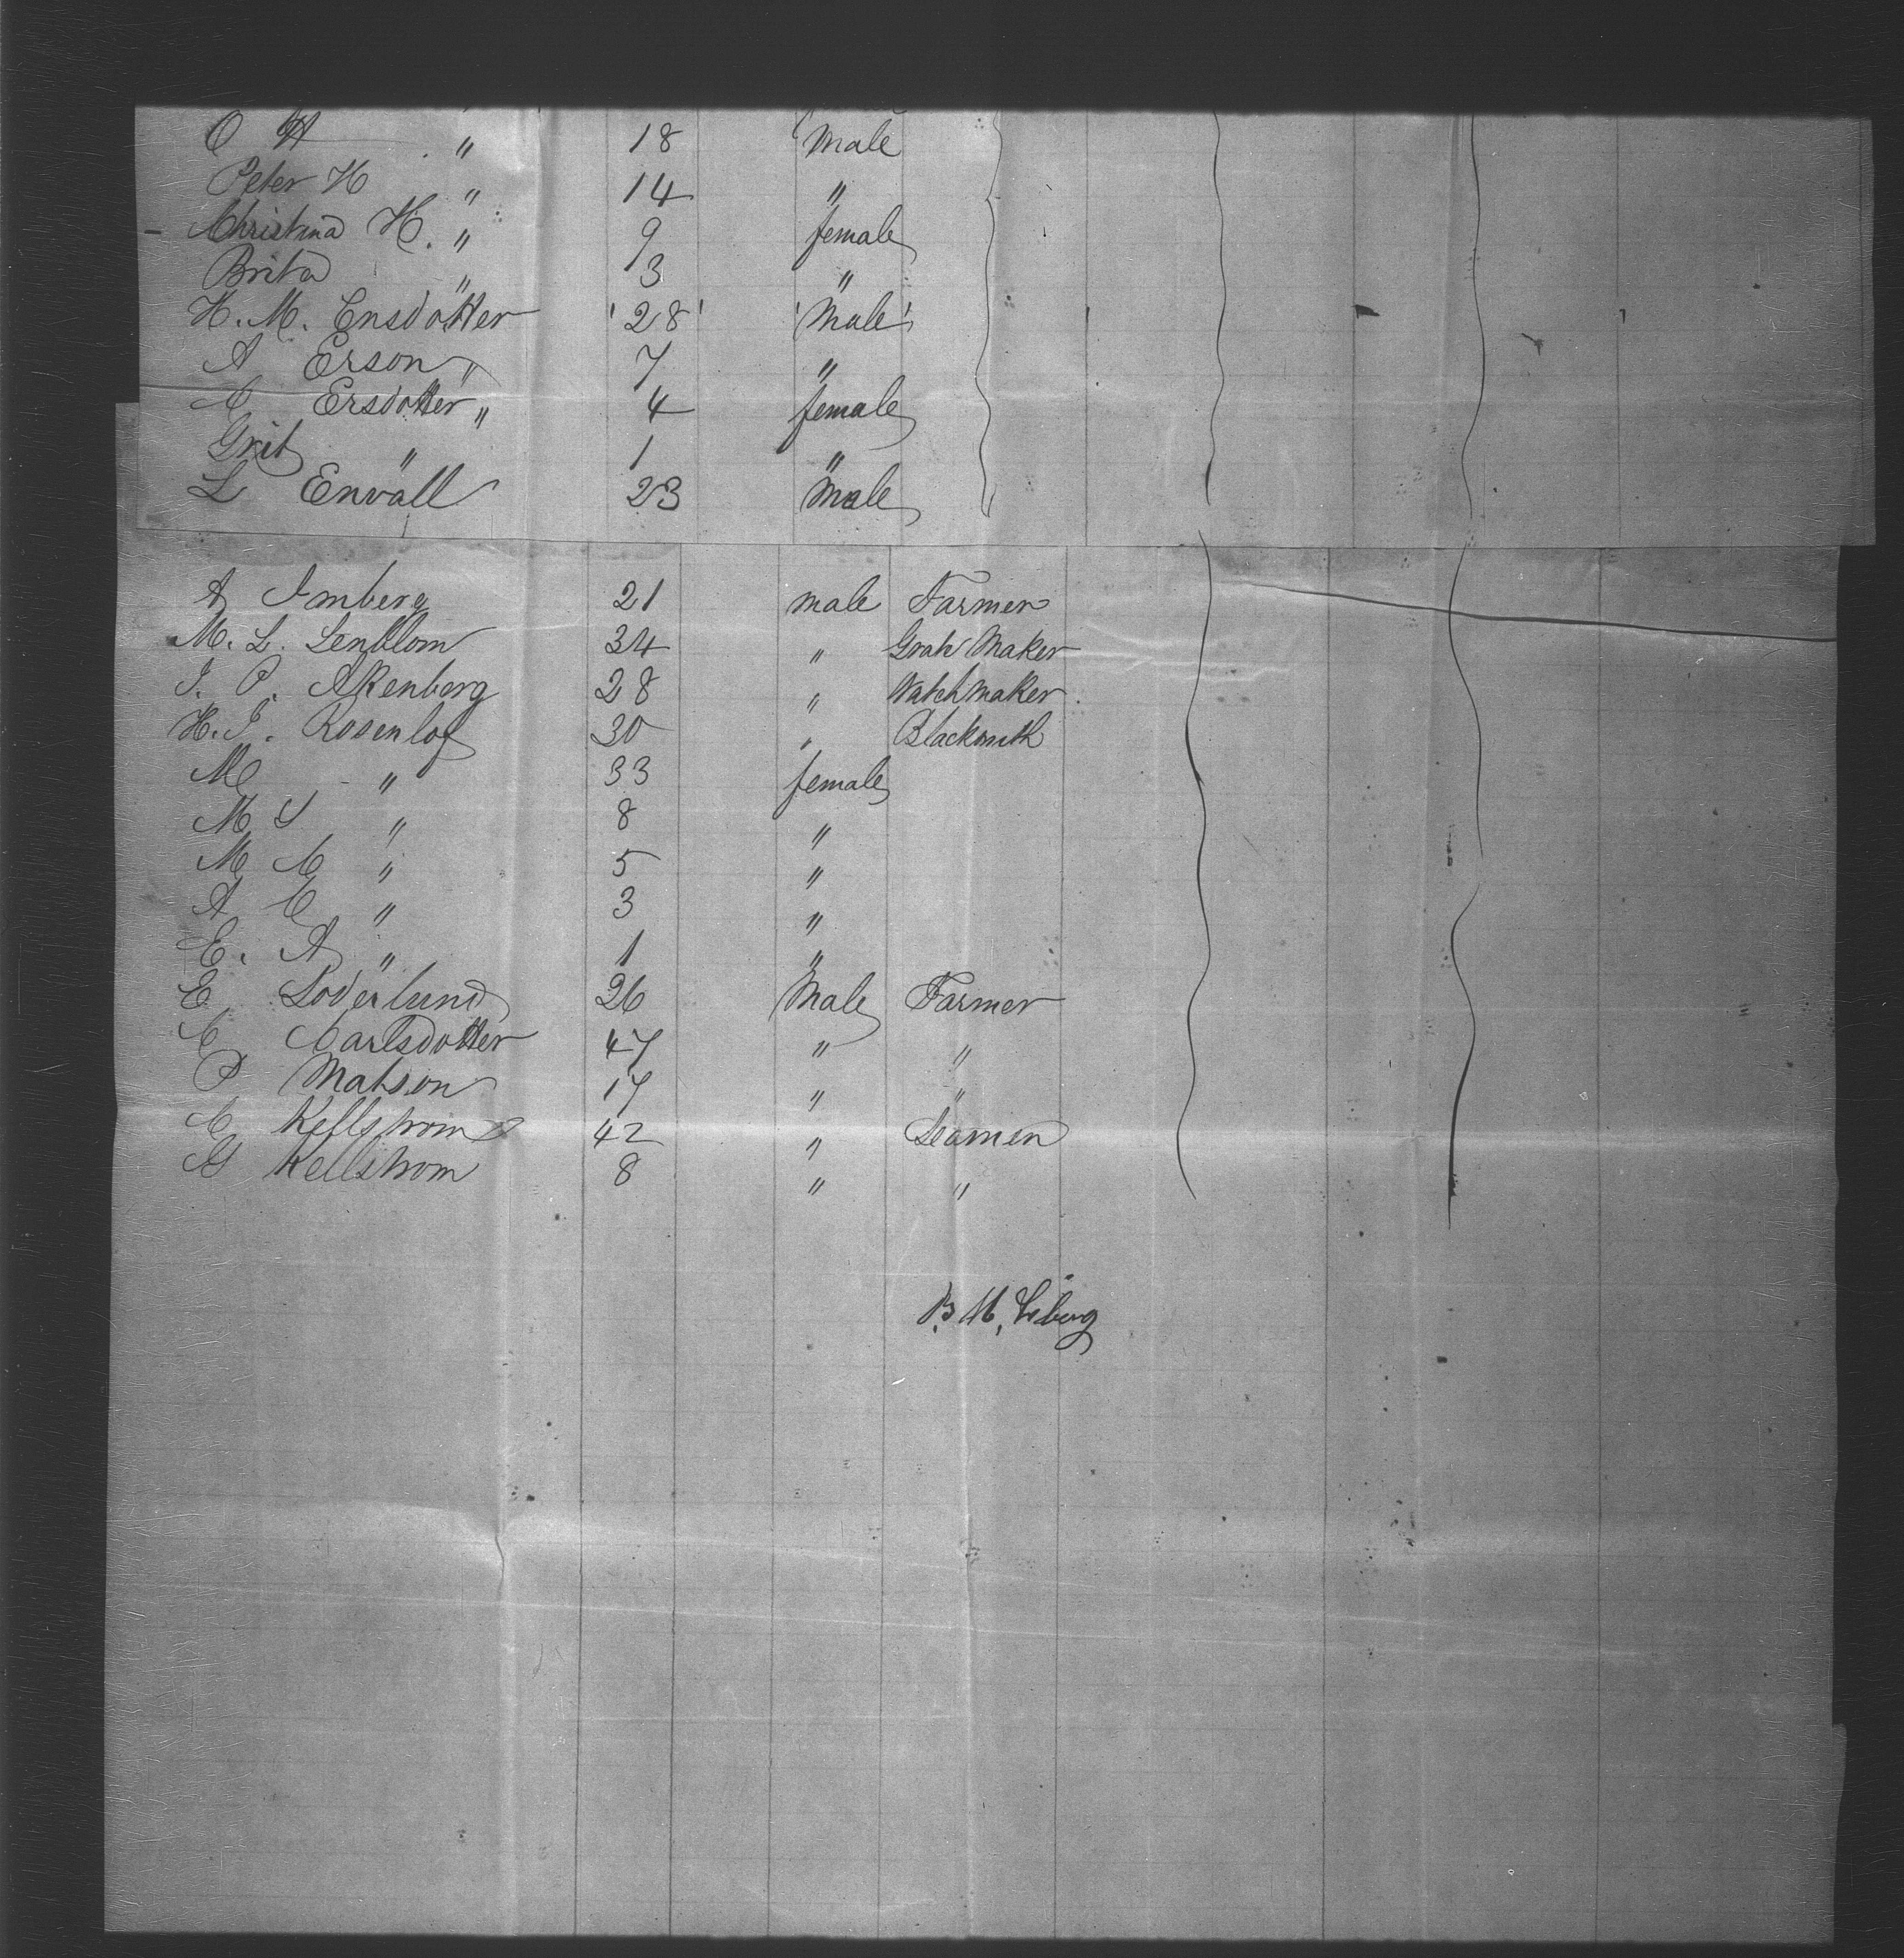 O H " 18 Male
Peter H " 14 "
Christina H. " 9 female
Brita " 3 "
H. M. Ensdotter 28 Male
A Erson " 7 "
C Ersdotter " 4 female
Grit " 1 "
L Envall 23 Male
A Imberg 21 male Farmer
M. L. Lenblom 34 " Maker
J. P. Akenberg 28 " Watchmaker
H. J. Rosenlof 30 " Blacksmith
M " 33 female
M S " 8 "
M C " 5 "
A C " 3 "
E. A " 1 "
E Soderlund 26 Male Farmer
C Carlsdotter 47 " "
P Matson 17 " "
C Kellstrom 42 " Seamen
G Kellstrom 8 " "
B. M.